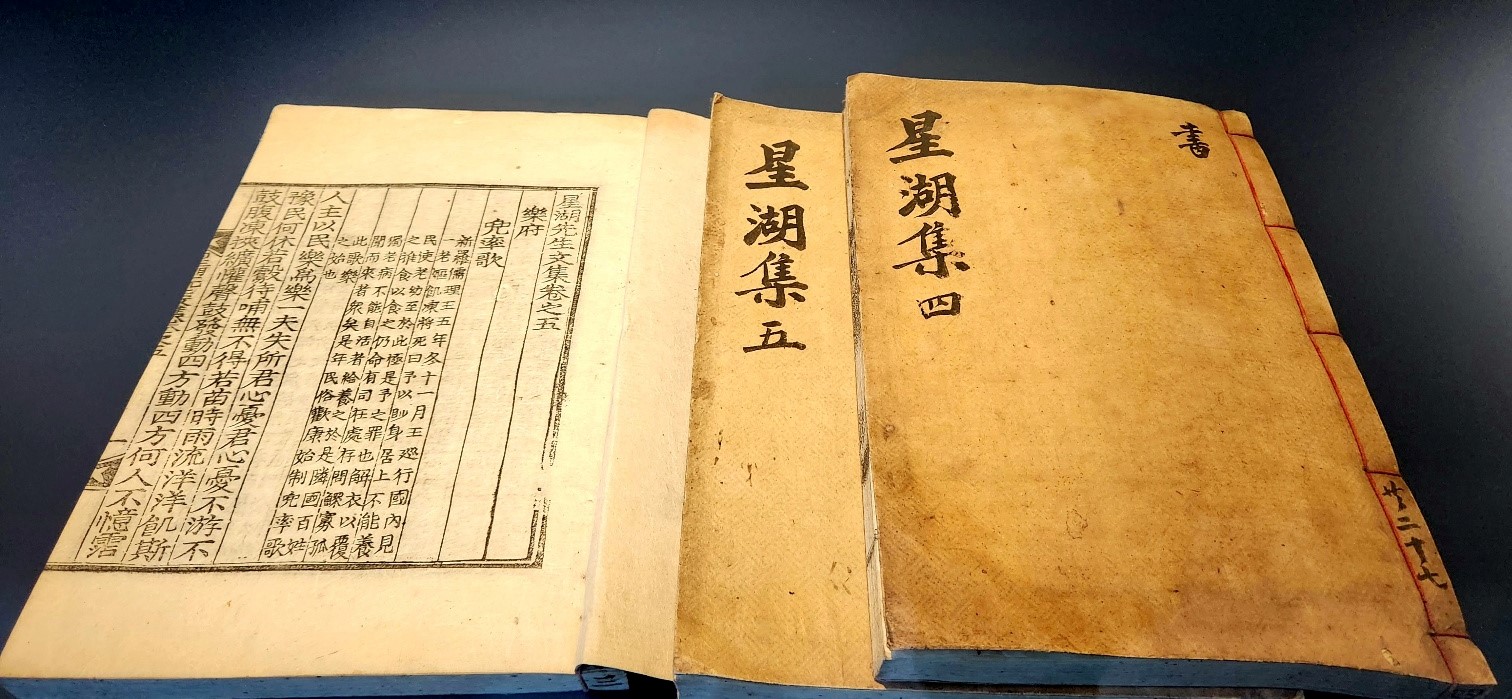 書
星湖集 四
共二十七
星湖集 五
星湖先生文集卷之五
樂府
兜率歌
新羅儒理王五年冬十一月王巡行國內見
一老嫗飢凍將死曰予以眇身居上不能養
民使老幼至於此極是予之罪也解衣以覆
之推食以食之仍命有司在處存問鰥寡孤
獨老病不能自活者給養之於是隣國百姓
聞而來者衆矣是年民俗歡康始制兜率歌
此歌樂
之始也
人主以民樂爲樂一夫失所君心憂君心憂不游不
豫民何休若鷇待哺無不得若苗時雨流洋洋飢斯
鼓腹凍挾纊懽聲鼓發動四方動四方何人不憶霑